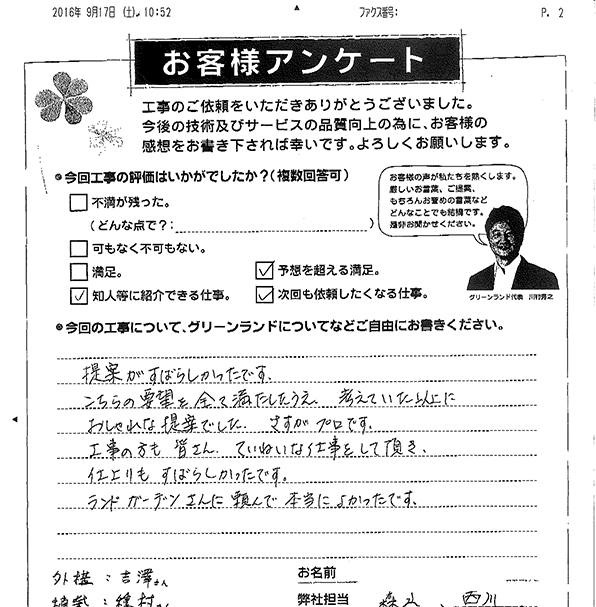 2016年 9月17日 (土)。10:52
ファクス番号:
P. 2
お客様アンケート
工事のご依頼をいただきありがとうございました。
今後の技術及びサービスの品質向上の為に、お客様の
感想をお書き下されば幸いです。よろしくお願いします。
今回工事の評価はいかがでしたか?(複数回答可)
不満が残った。
(どんな点で?:
)
可もなく不可もない。
満足。
予想を超える満足。
知人等に紹介できる仕事。
次回も依頼したくなる仕事。
お客様の声が私たちを熱くします。
厳しいお言葉、ご提案、
もちろんお誉めの言葉など
どんなことでも結構です。
是非お聞かせください。
グリーンランド代表
今回の工事について、グリーンランドについてなどご自由にお書きください。
提案がすばらしかったです、
こちらの要望を全て満たしたうえ、考えていた以上に
おしゃれな提案でした。さすがプロです。
工事の方も皆さん、ていねいな仕事をして頂き、
仕上りもすばらしかったです。
ランドガーデンさんに頼んで本当によかったです、
外構:吉澤さん
お名前
弊社担当
西川